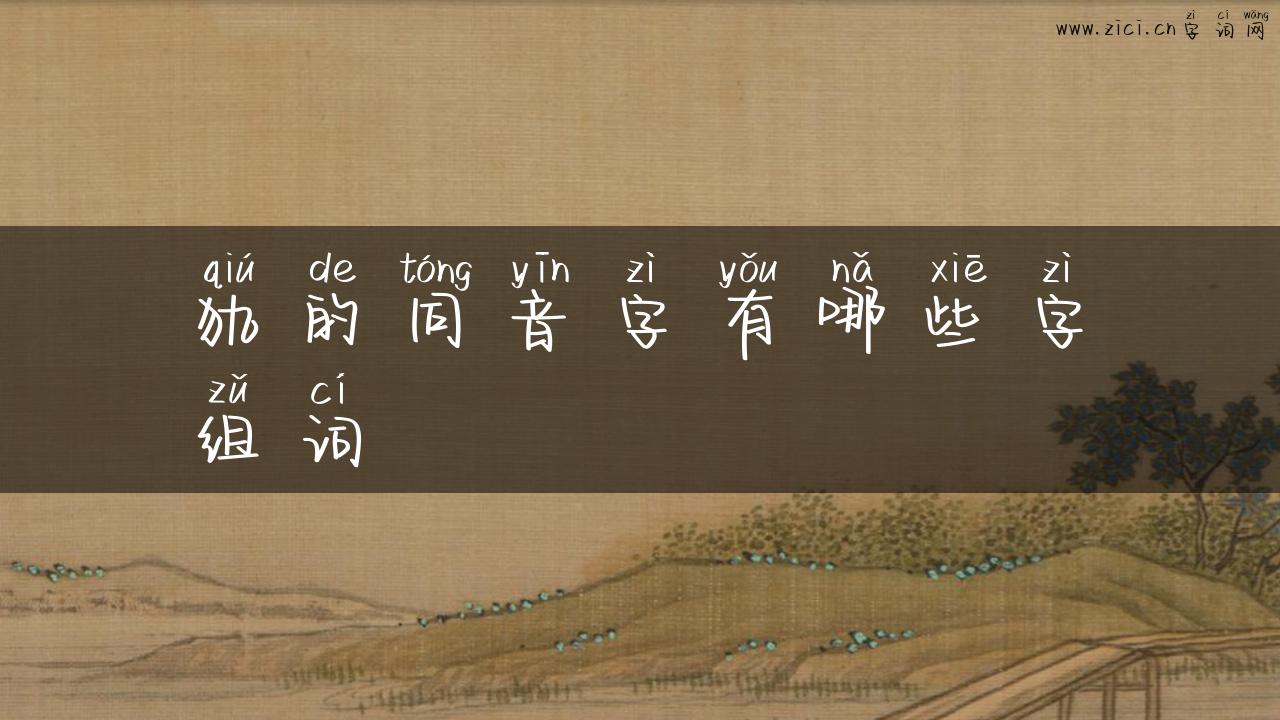 zì cí wǎng
www.zici.cn 字 词 网
qiú de tóng yīn zì yǒu nǎ xiē zì
犰 的 同 音 字 有 哪 些 字
zǔ cí
组 词